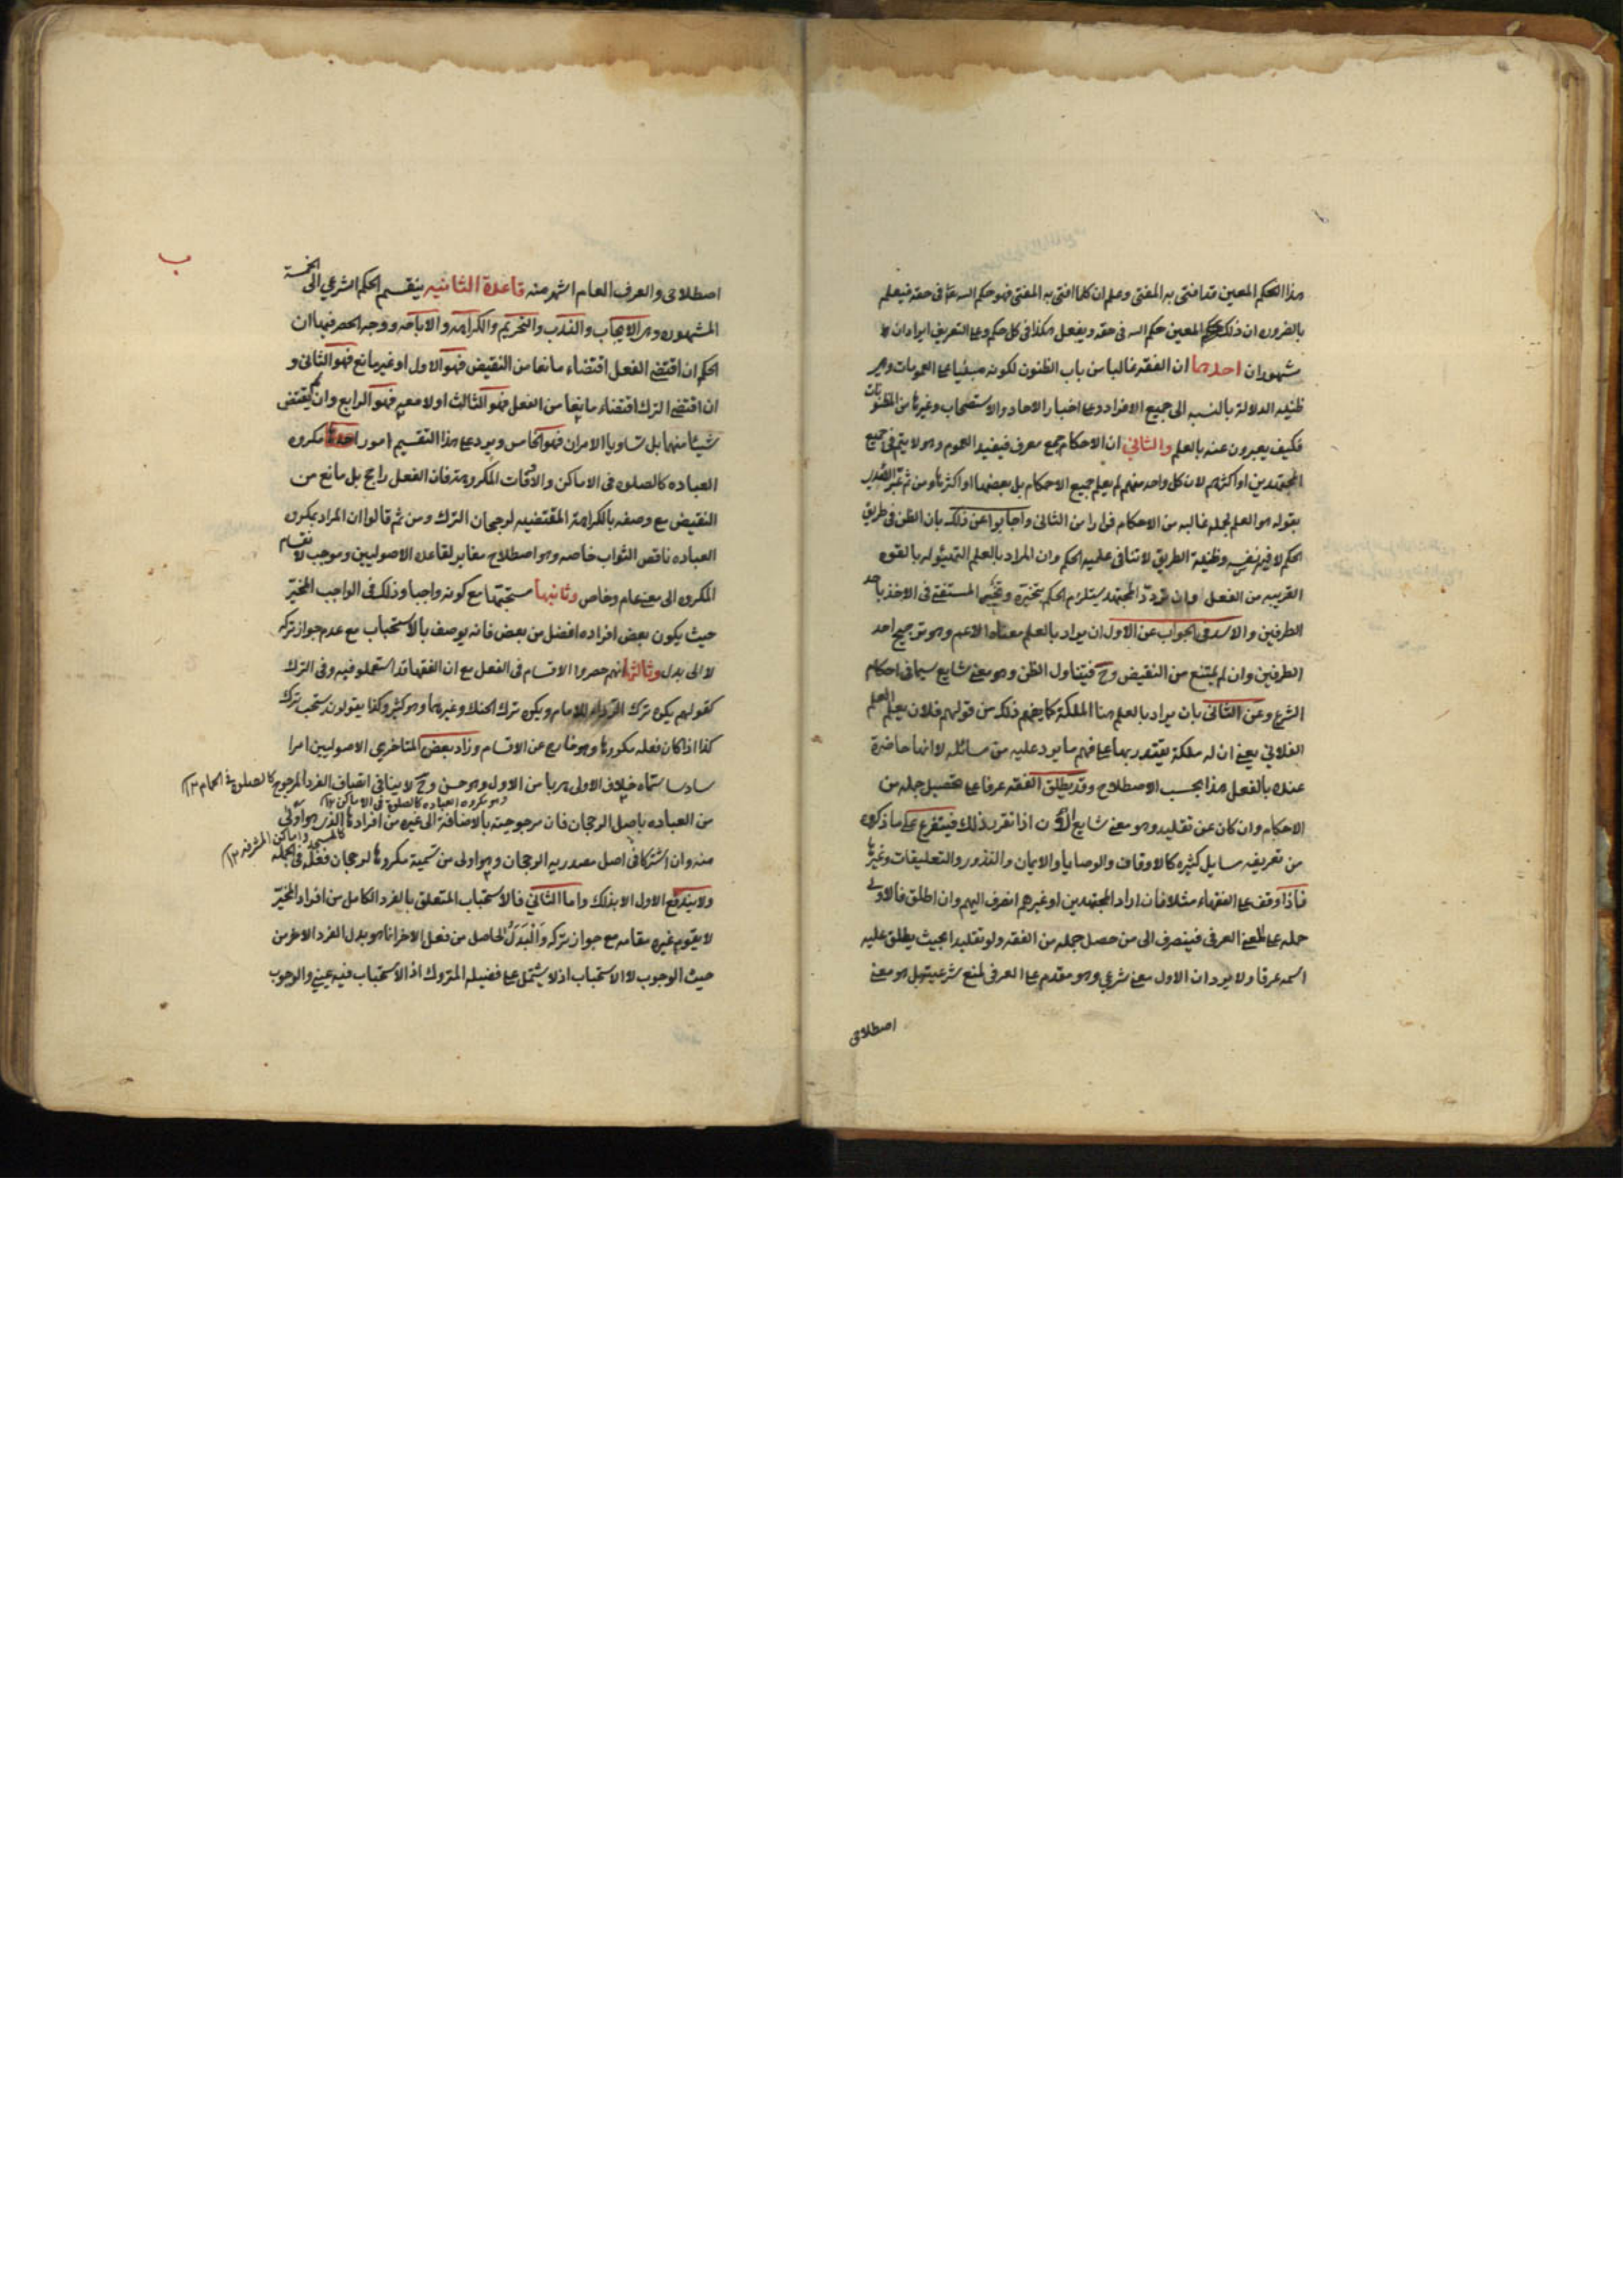 هذا الحكم المعين قد افتى به المفتى وعلم ان كلما افتى به المفتى فهو حكم الله تعالى فى حقه فيعلم
بالضروره ان ذلك الحكم المعين حكم الله فى حقه ويفعل هكذا فى كل حكم وعلى التعريف ايرادان
مشهوران احدهما ان الفقه غالبا من باب الظنون لكونه مبنيا على العمومات وهى
ظنيه الدلالة بالنسبه الى جميع الافراد وعلى اخبار الاحاد والاستصحاب وغيرها من المظنونات
فكيف يعبرون عنه بالعلم والثانى ان الاحكام جمع معرف فيفيد العموم وهو لا يتم فى جميع
المجتهدين او اكثرهم لان كل واحد منهم لم يعلم جميع الاحكام بل بعضها او اكثرها ومن ثم غير
بقوله هو العلم بجمله غالبه من الاحكام فرارا من الثانى واجابوا عن ذلك بان الظن فى طريق
الحكم لا فيه نفسه وظنية الطريق لا تنافى علمية الحكم وان المراد بالعلم التهيئو له بالقوه
القريبه من الفعل وان تردد المجتهد يستلزم الحكم بتخيره وتخير المستفتى فى الاخذ باحد
الطرفين والاسد فى الجواب عن الاول ان يراد بالعلم معناه الاعم وهو ترجيح احد
الطرفين وان لم يمتنع من النقيض وح فيتناول الظن وهو معنى شايع سيما فى احكام
الشرع وعن الثانى بان يراد بالعلم هنا الملكة كما يفهم ذلك من قولهم فلان يعلم العلم
الفلانى يعنى ان له ملكة يقتدر بها على فهم ما يرد عليه من مسائله لا انها حاضرة
عنده بالفعل هذا بحسب الاصطلاح وقد يطلق الفقه عرفا على تحصيل جمله من
الاحكام وان كان عن تقليد وهو معنى شايع الآن اذا تقرر ذلك فيتفرع على ما ذكروه
من تعريفه مسايل كثيره كالاوقاف والوصايا والايمان والنذور والتعليقات وغيرها
فاذا وقف على الفقهاء مثلا فان اراد المجتهدين او غيرهم انصرف اليهم وان اطلق فالاولى
حمله على المعنى العرفى فينصرف الى من حصل جمله من الفقه ولو تقليدا بحيث يطلق عليه
اسمه عرفا ولا يرد ان الاول معنى شرعى وهو مقدم على العرفى لمنع شرعيته بل هو معنى
اصطلاحى
ب
اصطلاحى والعرف العام اشهر منه قاعدة الثانيه ينقسم الحكم الشرعى الى الخمسة
المشهوره وهى الايجاب والندب والتحريم والكراهه والاباحه ووجه الحصر فيها ان
الحكم ان اقتضى الفعل اقتضاء مانعا من النقيض فهو الاول او غير مانع فهو الثانى و
ان اقتضى الترك اقتضاء مانعا من الفعل فهو الثالث او لا معه فهو الرابع وان لم يقتض
شيئا منهما بل تساويا الامران فهو الخامس ويرد على هذا التقسيم امور احدها مكروه
العباده كالصلوه فى الاماكن والاوقات المكروهة فان الفعل راجح بل مانع من
النقيض مع وصفه بالكراهة المقتضيه لرجحان الترك ومن ثم قالوا ان المراد بمكروه
العباده ناقص الثواب خاصه وهو اصطلاح مغاير لقاعده الاصوليين وموجب لانقسام
المكروه الى معنى عام وخاص وثانيها مستحبها مع كونه واجبا وذلك فى الواجب المخير
حيث يكون بعض افراده افضل من بعض فانه يوصف بالاستحباب مع عدم جواز تركه
لا الى بدل وثالثها انهم حصروا الاقسام فى الفعل مع ان الفقها قد استعملوه فيه وفى الترك
كقولهم يكره ترك الرداء للامام ويكره ترك الحنك وغيرهما وهو كثير وكذا يقولون يستحب ترك
كذا اذا كان فعله مكروها وهو خارج عن الاقسام وزاد بعض المتاخرين الاصوليين امرا
سادسا سماه خلاف الاولى هربا من الاول وهو حسن وح لا ينافى اتصاف الفرد المرجوح كالصلوة فى الحمام ١٢
وهو مكروه العباده كالصلوة فى الاماكن ١٢
من العباده باصل الرجحان فان مرجوحيته بالاضافة الى غيره من افرادها الذى هو اولى
كالمسجد واماكن المشرفه ١٢
منه وان اشتركا فى اصل مصدريه الرجحان وهو اولى من تسمية مكروها لرجحان فعله فى الجمله
ولا يندفع الاول الا بذلك واما الثانى فالاستحباب المتعلق بالفرد الكامل من افراد المخير
لا يقوم غيره مقامه مع جواز تركه والبدل الحاصل من فعل الاخر انما هو بدل الفرد الاخر من
حيث الوجوب لا الاستحباب اذ لا يشتمل على فضيله المتروك اذ الاستحباب فيه عينى والوجوب